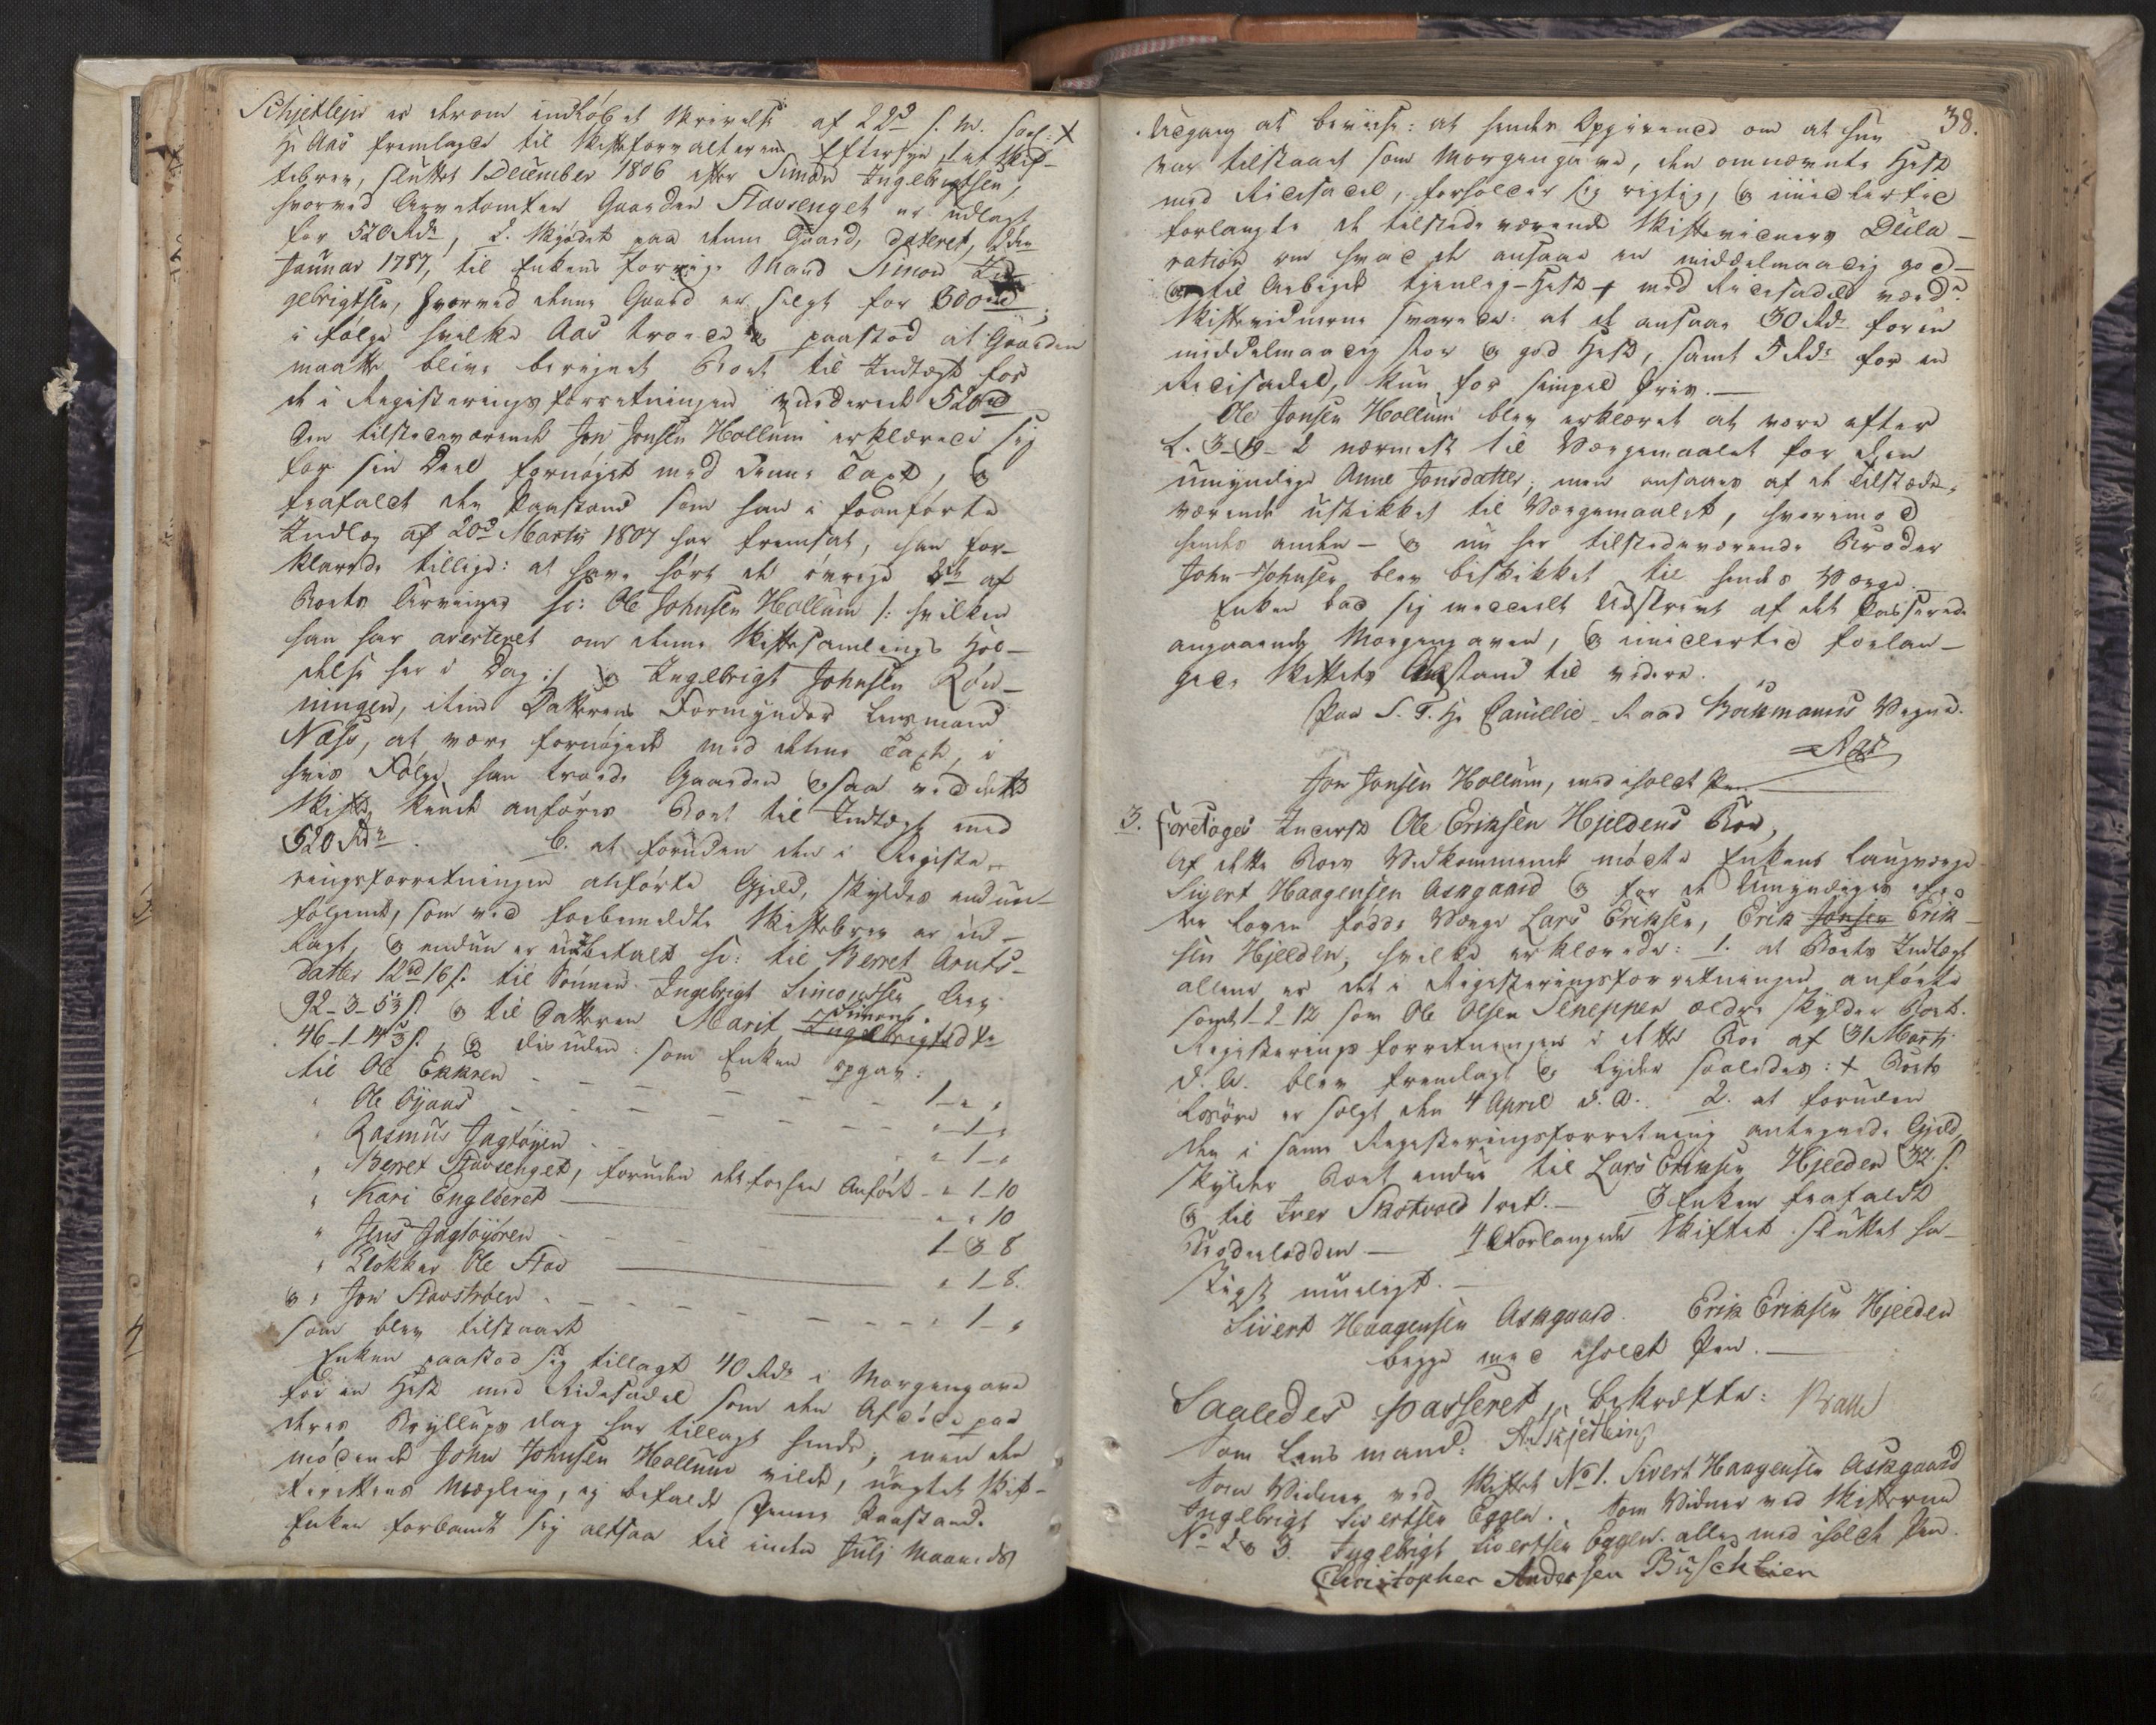 Schjetlejn er derom indløbet Skrivelse af 22d s. M. saal: X
Hr Aas fremlagde til Skifteforvalterens Eftersyn 1. et Skif-
tebrev, sluttet 1 December 1806 efter Simon Ingebrigtsen,
hvorved Arvetomten Gaarden Stavsenget er udlagt
for 520 Rdr, 2. Skjødet paa denne Gaard, dateret, 2den
Januar 1787, til Enkens forrige Mand Simon In-
gebrigtsen, hvorved denne Gaard er solgt for 300 rd;
i følge hvilke Aas troede og paastod at Gaarden
maatte blive beregnet Boet til Indtægt for
de i Registeringsforretningen vurderede 520 rd
Den tilstedeværende Jon Jonsen Hollum erklærede sig
for sin Deel fornøjet med denne Taxt, og
frafaldt den Paastand som han i foranførte
Indlæg af 20d Martii 1807 har fremsat, han for-
klarede tillige: at have hørt de øvrige af
Boets Arvinger so: Ole Johnsen Hollum /: hvilken
han har averteret om denne Skiftesamlings Hol-
delse her i Dag :/ og Ingebrigt Johnsen Røn-
ningen, item Datterens Formynder Lensmand
Næss, at være fornøjede med denne Taxt, i
hvis Følge han troede Gaarden ogsaa ved dette
Skifte kunde anføres Boet til Indtægt med
520 Rdr. C. at foruden den i Registe-
ringsforretningen anførte Gjeld, skyldes endnu
følgende, som ved forbemeldte Skiftebrev er ud-
lagt, og endnu er ubetalt so: til Berret Arnts-
datter 12 rd 16 s. til Sønnen Ingebrigt Simonssen Arv
92-3-5 3/5 s. og til Datteren Marit Ingebrigtsdtr Simons
46-1-14 4/5 s., og desuden som Enken opgav:
til Ole Ekkren - - - - - 1 - " "
" Ole Øyaas - - - - - " 1 - "
" Rasmus Jagtøyen - - - " 1 - "
" Berret Stavsenget, foruden det forhen Anført - " 1-10
" Kari Englberet - - " " 10
" Jens Jagtøyøren - - - 1-3-8
" Klokker Ole Stav - - " 1-8.
og " Jon Stavstrøen - - - - " 1 - "
som blev tilstaaet
Enken paastod sig tillagt 40 Rdr i Morgengave
for en Hest med Ridesadel som den Afdøde paa
deres Bryllups dag har tillagt hende; men den
mødende John Johnsen Hollum vilde, uagtet Skif-
terettens Mægling, ej befalde denne Paastand.
Enken forbandt sig altsaa til inden Julj Maaneds
38.
Udgang at beviise: at hendes Opgivende om at hun
var tilstaaet som Morgengave, den omnævnte Hest
med Ridesadel, forholder sig rigtig, og imidlertid
forlangte de tilstedeværende Skiftevidners Decla-
ration om hvad de ansaae en middelmaadig god-
og til Arbejde tjenlig-Hest + med Ridesadel værd?
Skiftevidnerne svarede: at de ansaae 30 Rdr for en
middelmaadig stor og god Hest, samt 5 Rdr for en
Ridesadel, kun for simpel Priis.
Ole Jonsen Hollum blev erklæret at være efter
L. 3-19-2 nærmest til Værgemaalet for den
umyndige Anne Jonsdatter; men ansaaes af de tilstæde-
værende uskikket til Værgemaalet, hvorimod
hendes anden - og nu her tilstedeværende Broder
John Johnsen blev beskikket til hendes Værge.
Enken bad sig meddeelt Udskrivt af det Passerede
angaaende Morgengaven, og imidlertid forlan-
gede Skiftets Anstand til videre.
Paa S. T. Hr Cancellie-Raad Bøckmanns Vegne.
Aas
Jon Jonsen Hollum, med iholdt Pen
3. Foretages Indersk Ole Eriksen Hjeldens Boe,
Af dette Boes Vedkommende mødte Enkens Laugværge
Sivert Haagensen Askgaard og for de Umyndiges ef-
ter Loven fødde Værge Lars Eriksen, Erik Jonsen Erik-
sen Hjelden, hvilke erklærede: 1. at Boets Indtægt
allene er det i Registeringsforretningen anførte
samt 1-2-12 som Ole Olsen Sleneppen ældre skylder Boet.
Registeringsforretningen i dette Boe af 31 Martii
d. A. blev fremlagt og lyder saaledes: + Boets
Løsøre er solgt den 4 April d. A. 2. at foruden
den i samme Registeringsforretning antegnede Gjeld,
skylder Boet endnu til Lars Eriksen Hjelden 32 s.
og til Iver Skotvold 1 ort. - 3 Enken frafaldt
Broderlodden - 4 Forlangede Skiftet sluttet ha-
stigst mueligt.
Sivert Haagensen Askgaard. Erik Eriksen Hjelden
begge med iholdt Pen.
Saaledes passeret, bekræfter: Brall
Som Lensmand: A. Skjetlein
Som Vidner ved Skiftet No 1. Sivert Haagensen Askgaard
Ingebrigt Sivertsen Eggen. Som Vidner ved Skifterne
No 2 og 3. Ingebrigt Sivertsen Eggen. alle med iholdt Pen.
Christopher Andersen Buschlien